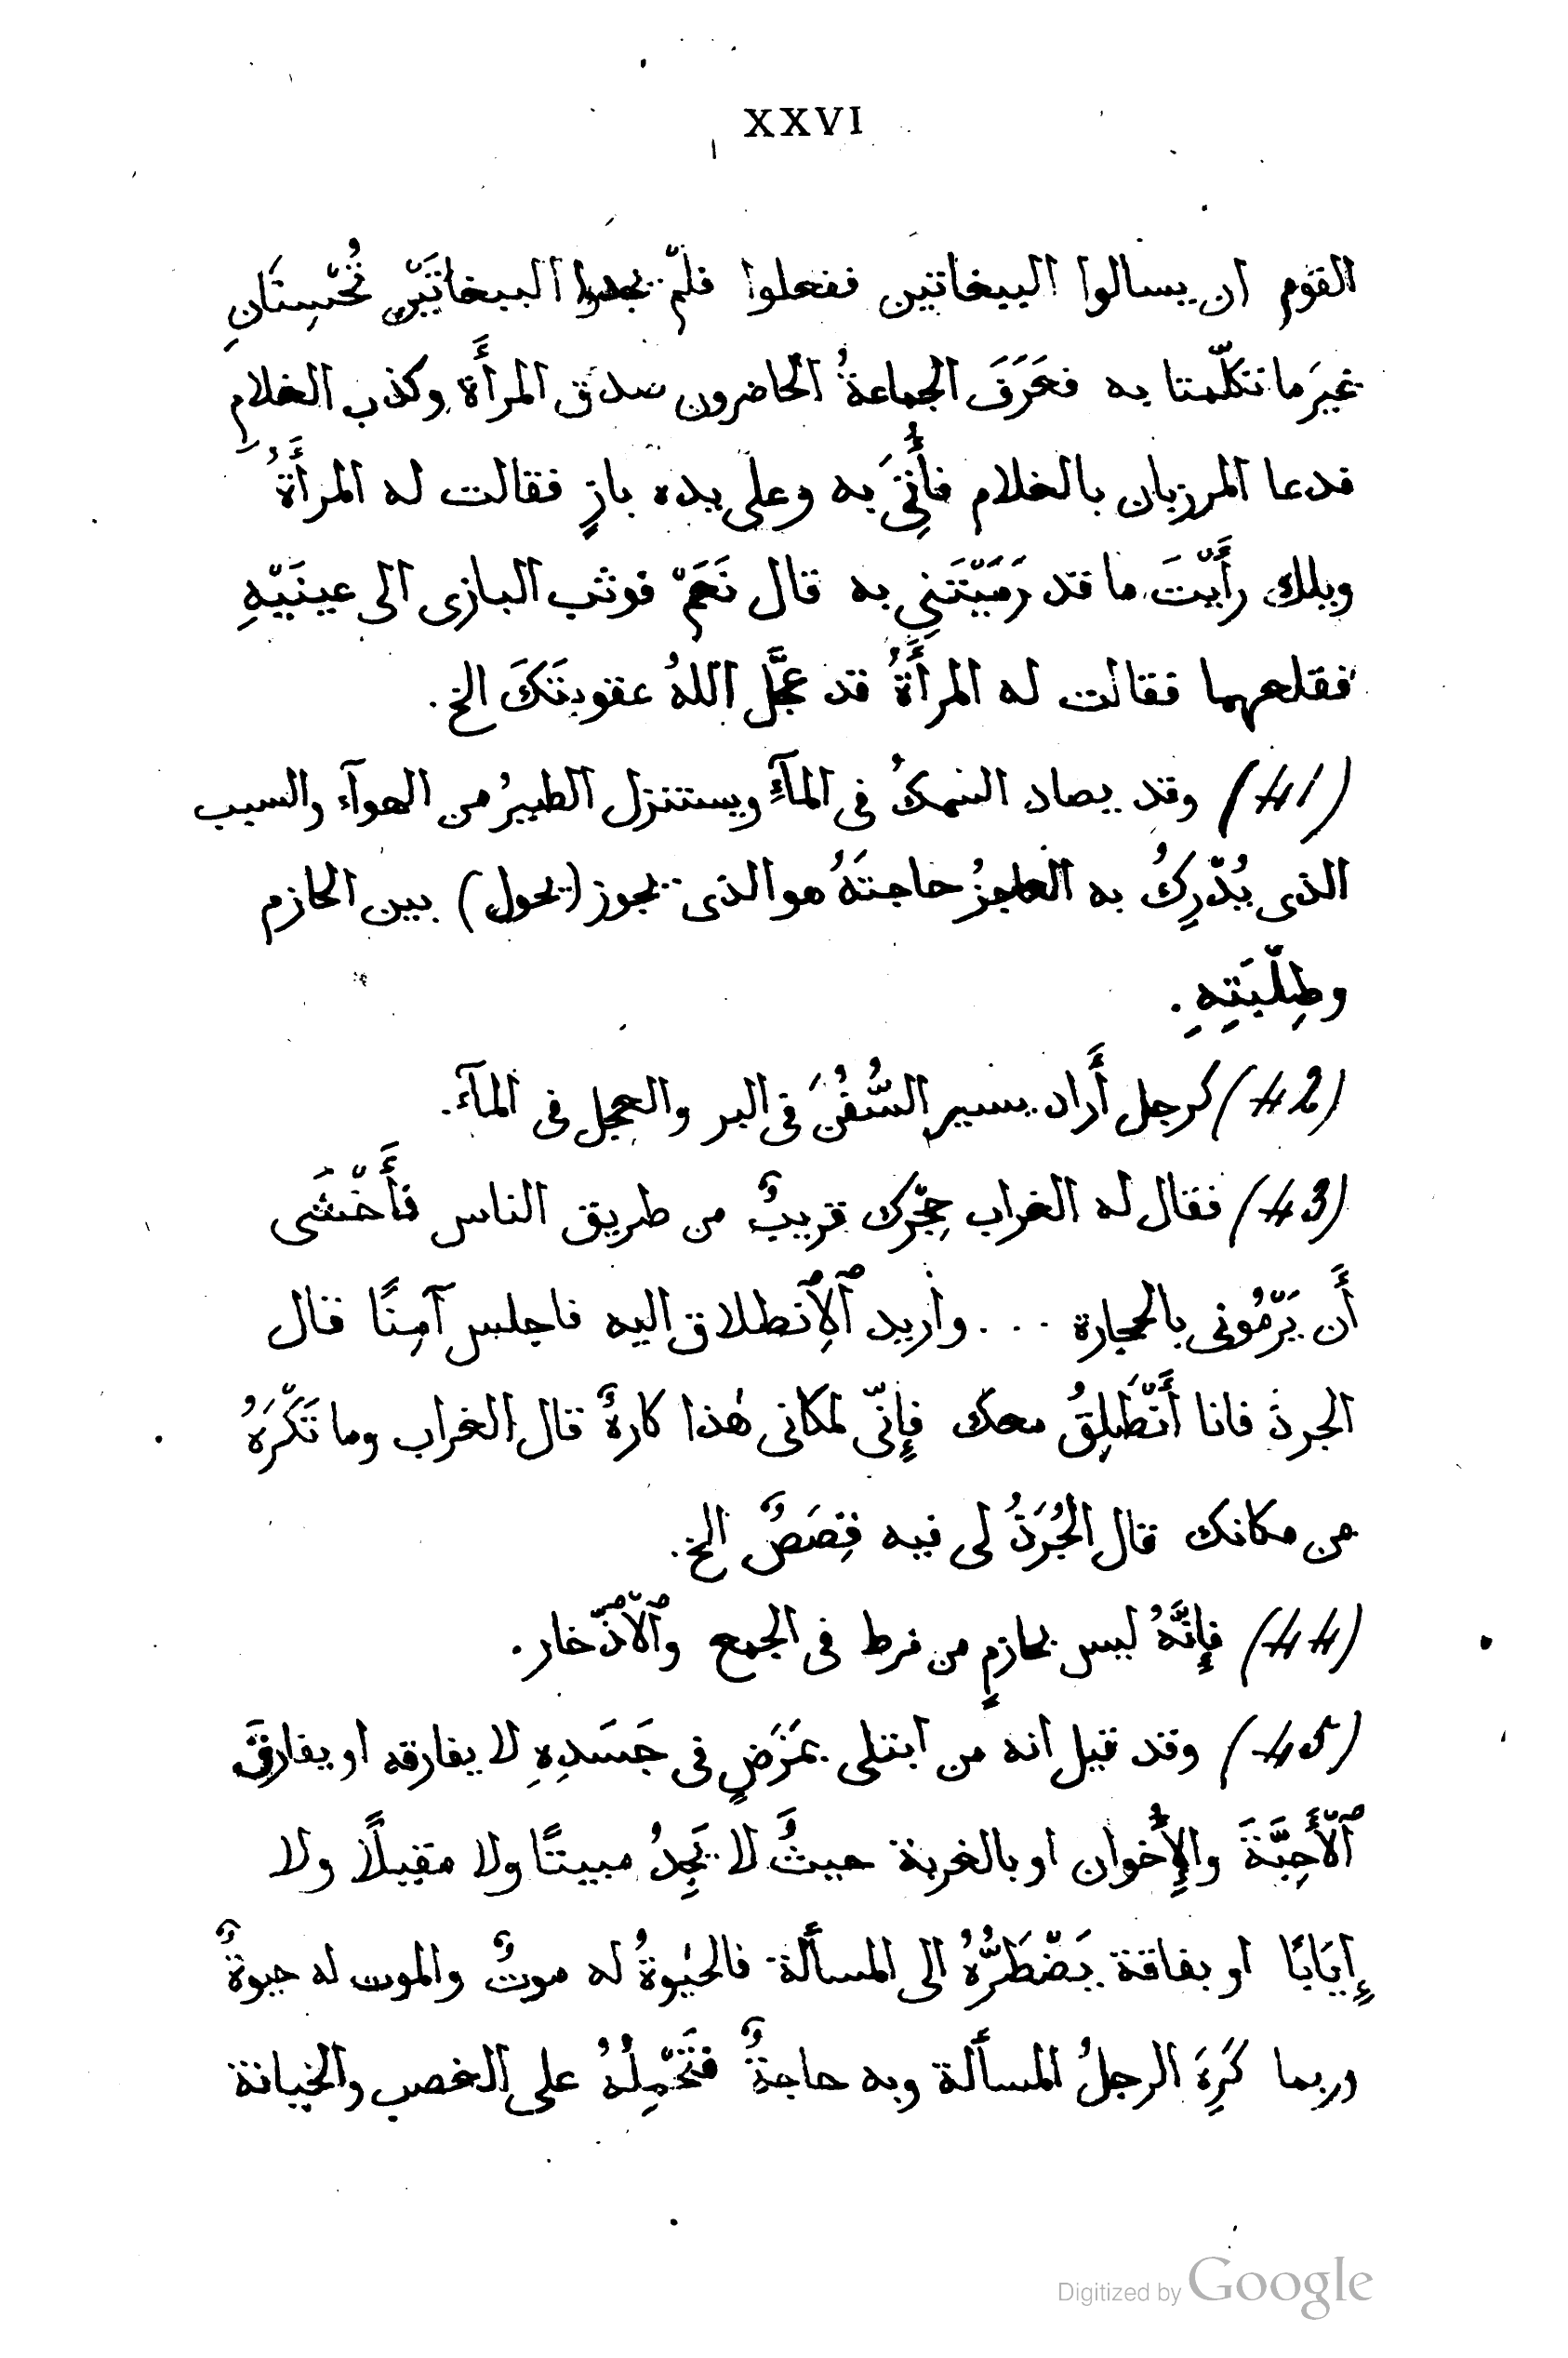 XXVI
القوم ان يسالوا الببغاتين ففعلوا فلمْ يجدوا الببغاتَيْن تُحْسِنَانِ
غيرَ ما تتكلّمتا به فعَرَفَ الجماعةُ الحاضرون صدق المرأَة وكذب الغلامِ
فدعا المرزبان بالغلام فأُتِىَ به وعلى يده بازٍ فقالت له المرأَةُ
ويلك رأَيْتَ ما قد رَمَيْتَنِي به قال نَعَمْ فوثب البازى الى عينَيْهِ
فقلعهما فقالت له المرأَةُ قد عجَّل اللهُ عقوبتَكَ الخ.
(41) وقد يصاد السمكُ فى المآءِ ويستنزل الطيرُ من الهوآء والسبب
الذى يُدْرِكُ به العاجزُ حاجتَهُ هو الذى يجوز (يحول) بين الحازم
وطِلْبَتِهِ.
(42) كرجل أَراد يسير السُّفُنَ فى البر والعجل فى المآء.
(43) فقال له الغراب جِحْرك قريبٌ من طريق الناس فأَخْشَى
أَن يَرْمُونى بالحجارة ... وأريد ٱلِٱنطلاق اليه فاجلس آمِنًا قال
الجرذ فانا أَنْطَلِقُ معك فإِنّى لمكانى هٰذا كارهٌ قال الغراب وما تَكْرَهُ
من مكانك قال الجُرَذُ لى فيه قِصَصٌ الخ.
(44) فإِنَّهُ ليس بحازمٍ من فرط فى الجمع وٱلْٱذّخار.
(45) وقد قيل انه من ابتلى بمَرَضٍ فى جَسَدِهِ لا يفارقه او يفارقَ
ٱلْأَحِبَّةَ والإِخوان او بالغربة حيثُ لا يَجِدُ مبيتًا ولا مقيلًا ولا
إِيَابًا او بفاقة يَضْطَرُّهُ الى المسألة فالحيٰوةُ له موتٌ والموت له حيوةٌ
وربما كَرِهَ الرجلُ المسألة وبه حاجةٌ فتَحْمِلُهُ على الغصب والخيانة
Digitized by Google